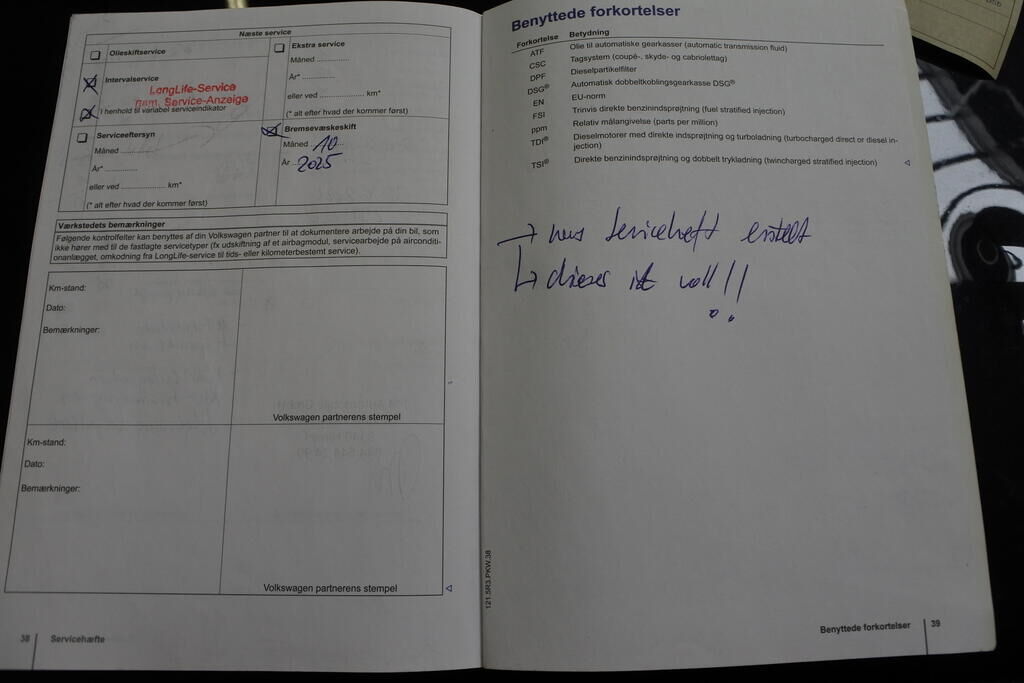 Næste service
Olieskiftservice
Intervalservice
LongLife-Service
nam. Service-Anzeige
I henhold til variabel serviceindikator
Serviceeftersyn
Måned ..............
År* ..............
eller ved .................... km*
(* alt efter hvad der kommer først)
Ekstra service
Måned ..............
År* ..............
eller ved .................... km*
(* alt efter hvad der kommer først)
Bremsevæskeskift
Måned 10
År 2025
Værkstedets bemærkninger
Følgende kontrolfelter kan benyttes af din Volkswagen partner til at dokumentere arbejde på din bil, som
ikke hører med til de fastlagte servicetyper (fx udskiftning af et airbagmodul, servicearbejde på aircondi-
onanlægget, omkodning fra LongLife-service til tids- eller kilometerbestemt service).
Km-stand:
Dato:
Bemærkninger:
Volkswagen partnerens stempel
Km-stand:
Dato:
Bemærkninger:
Volkswagen partnerens stempel
38 Servicehæfte
Benyttede forkortelser
Forkortelse Betydning
ATF Olie til automatiske gearkasser (automatic transmission fluid)
CSC Tagsystem (coupé-, skyde- og cabriolettag)
DPF Dieselpartikelfilter
DSG® Automatisk dobbeltkoblingsgearkasse DSG®
EN EU-norm
FSI Trinvis direkte benzinindsprøjtning (fuel stratified injection)
ppm Relativ målangivelse (parts per million)
TDI® Dieselmotorer med direkte indsprøjtning og turboladning (turbocharged direct or diesel in-
jection)
TSI® Direkte benzinindsprøjtning og dobbelt trykladning (twincharged stratified injection)
→ neues Serviceheft erstellt
↳ dieses ist voll!!
121.5R3.PKW.38
Benyttede forkortelser 39